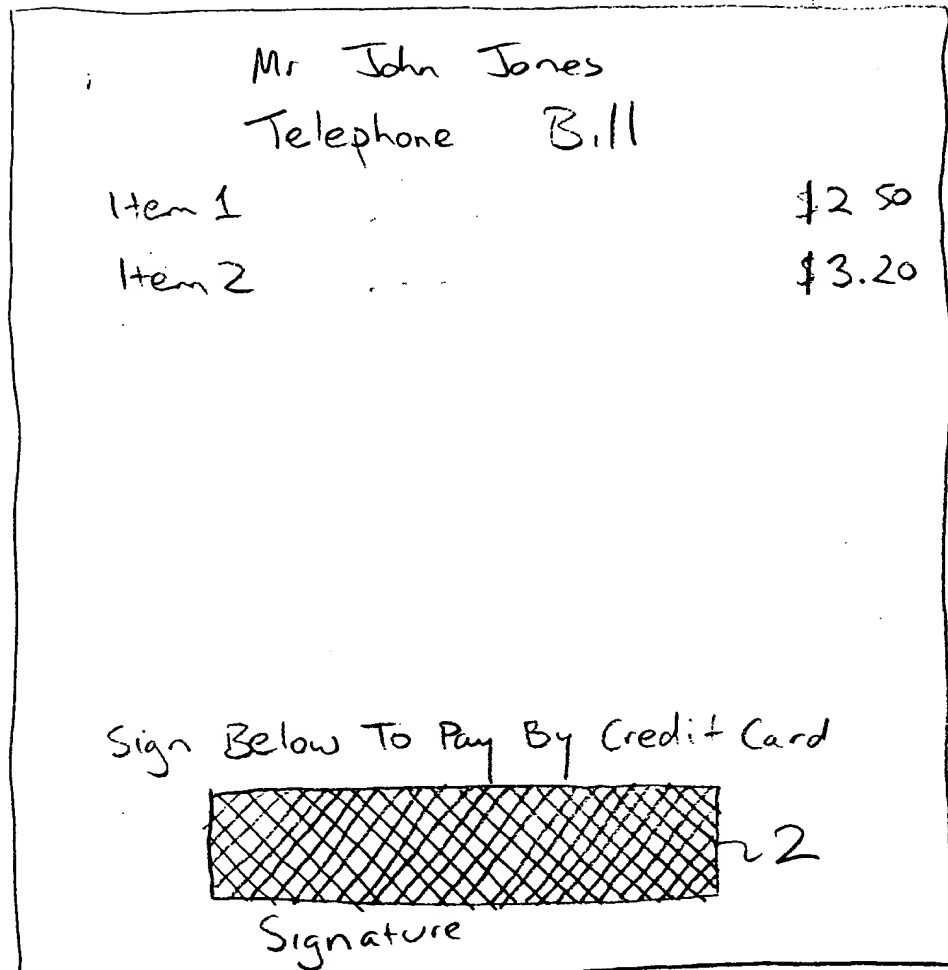 Mr John Jones
Telephone Bill
Item 1 . . $2 50
Item 2 . . . $3.20
Sign Below To Pay By Credit Card
2
Signature